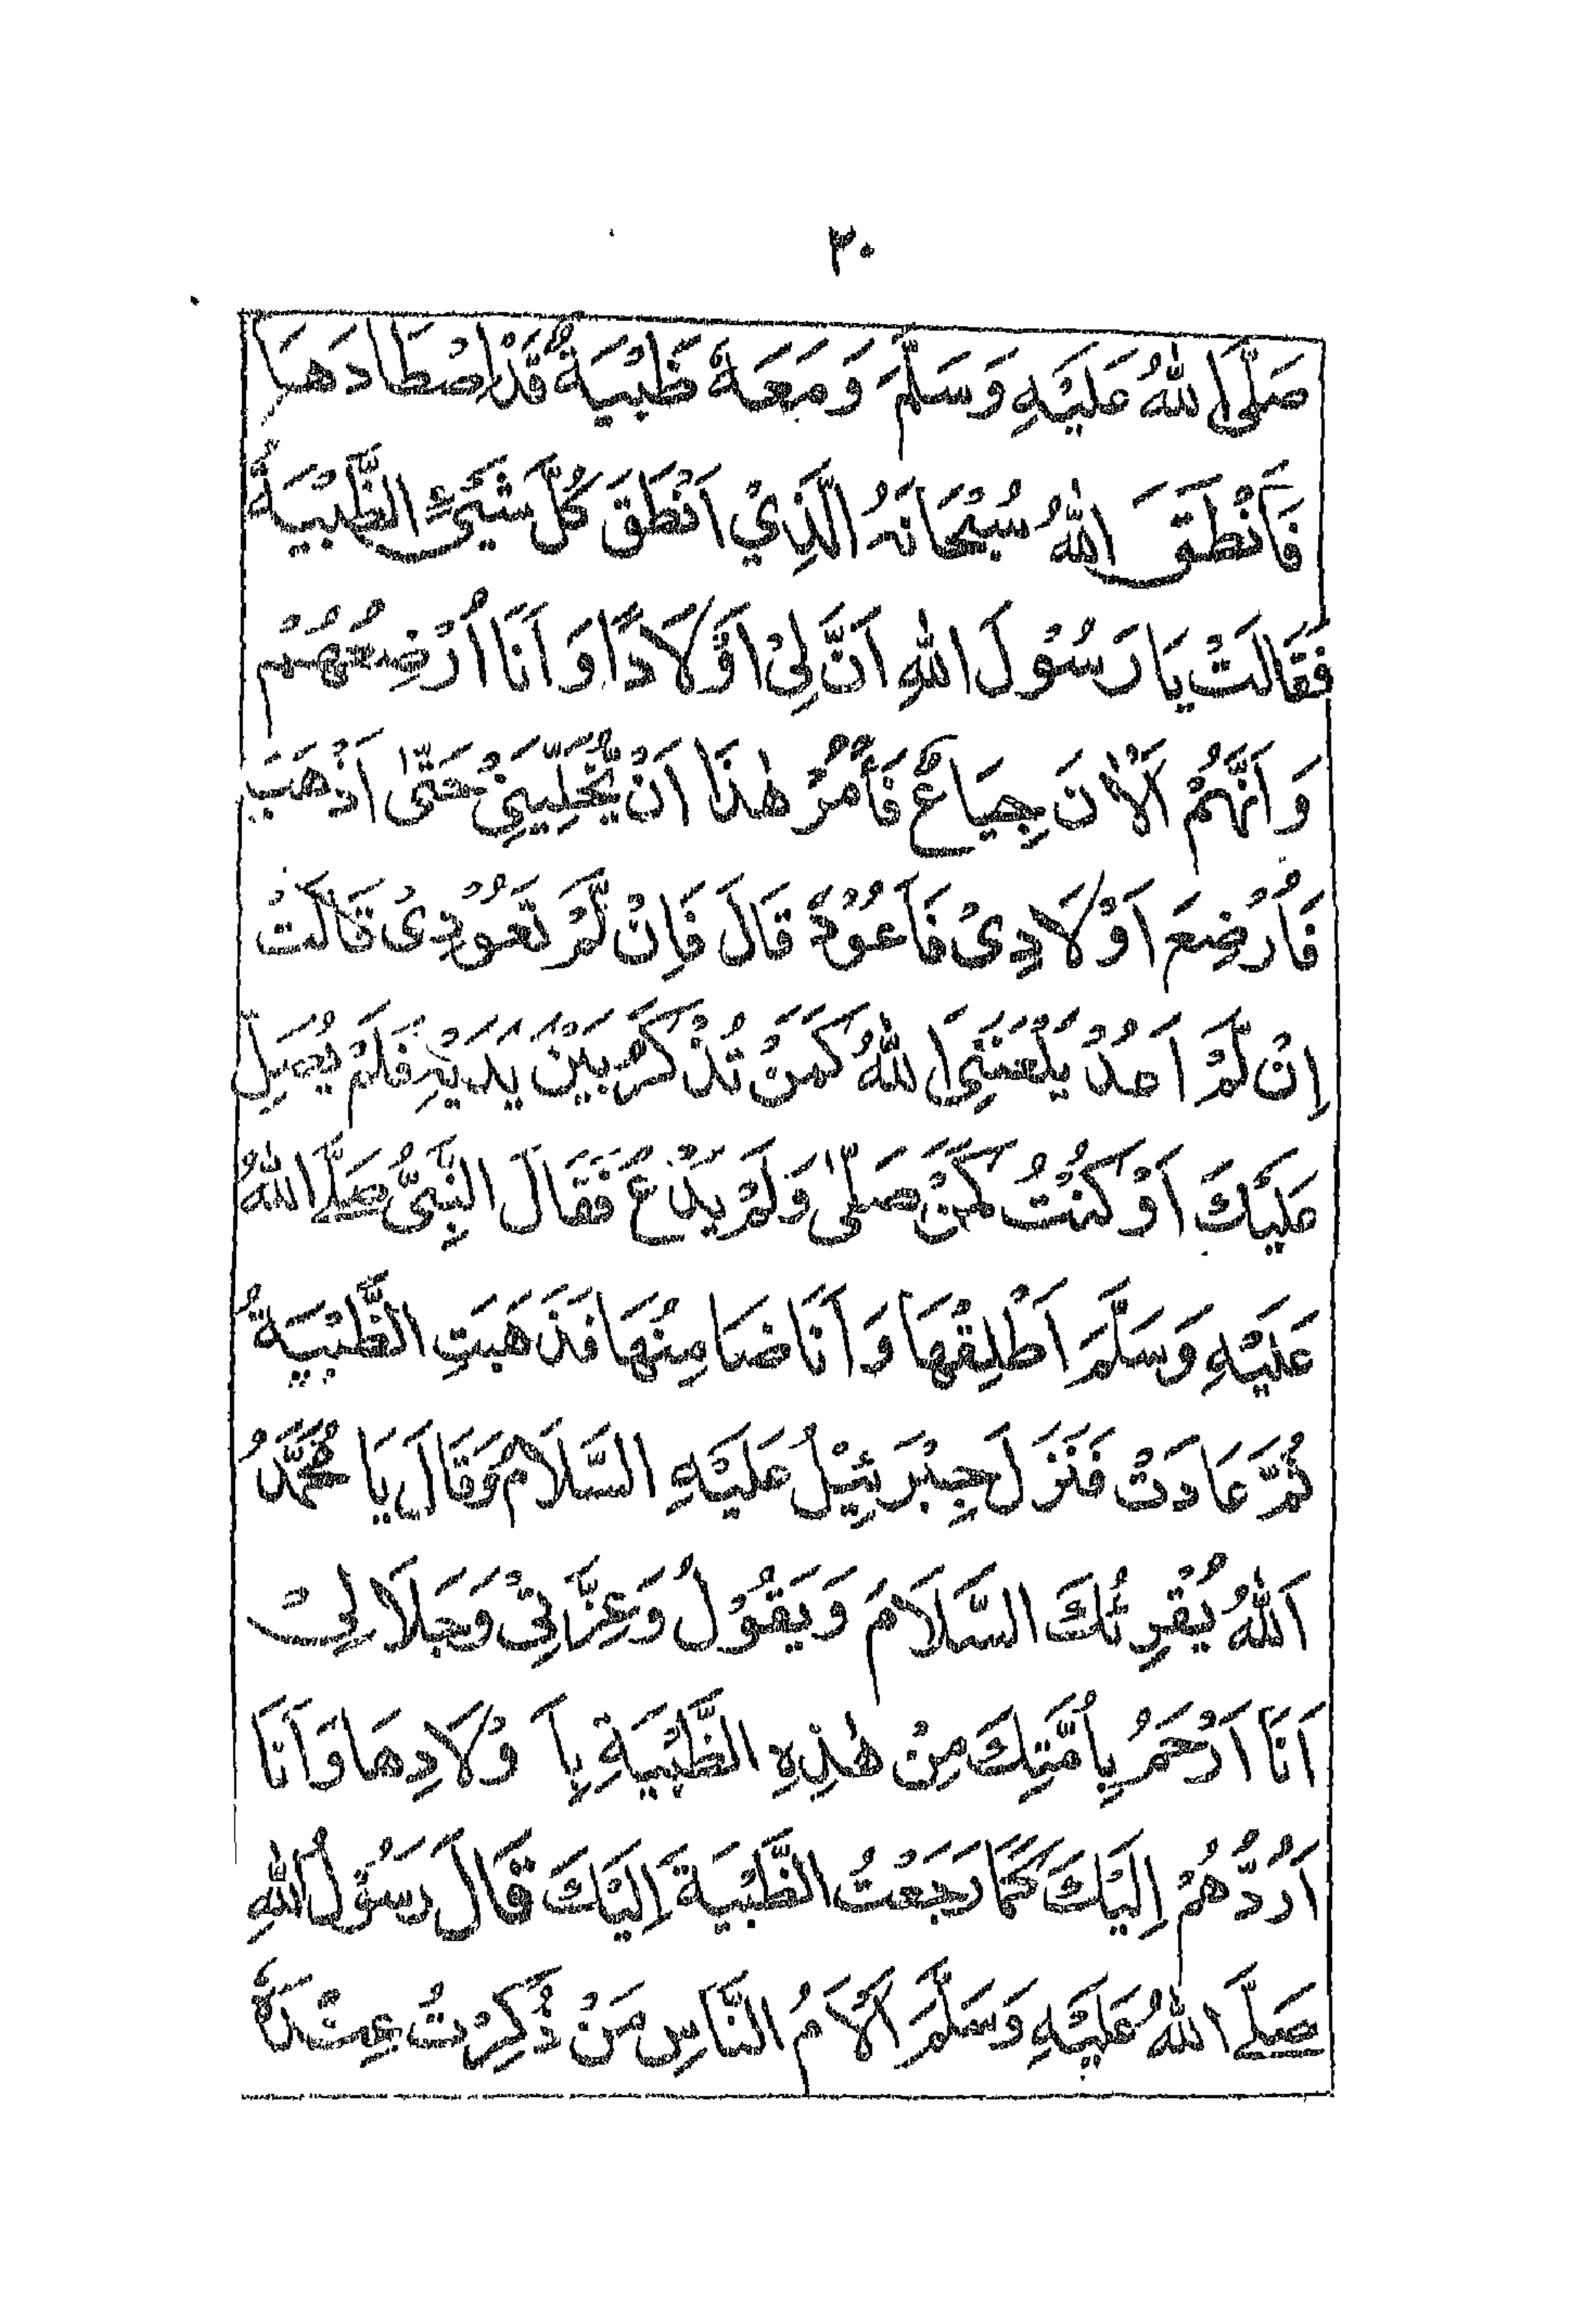 ٣٠
صَلَّى اللهُ عَلَيْهِ وَسَلَّمَ وَمَعَهٗ ظَبْيَةٌ قَدْ اصْطَادَهَا
فَأَنْطَقَ اللهُ سُبْحَانَهُ الَّذِيْ اَنْطَقَ كُلَّ شَيْئٍ الظَّبْيَةَ
فَقَالَتْ يَا رَسُوْلَ اللهِ اَنَّ لِيْ اَوْلَادًا وَ اَنَا اُرْضِعُهُمْ
وَ اَنَّهُمْ اَلْاٰنَ جِيَاعٌ فَأْمُرْ هٰذَا اَنْ يُّخَلِّيَنِيْ حَتّٰى اَذْهَبَ
فَاُرْضِعَ اَوْلَادِيْ فَاَعُوْدُ قَالَ فَاِنْ لَّمْ تَعُوْدِىْ قَالَتْ
اِنْ لَّمْ اَعُدْ يَلْعَنَنِيَ اللهُ كَمَنْ تُذْكَرُ بَيْنَ يَدَيْهِ فَلَمْ يُصَلِّ
عَلَيْكَ اَوْ كُنْتُ كَمَنْ صَلّٰى وَلَمْ يَدْعُ فَقَالَ النَّبِيُّ صَلَّى اللهُ
عَلَيْهِ وَسَلَّمَ اَطْلِقْهَا وَ اَنَا ضَامِنُهَا فَذَهَبَتِ الظَّبْيَةُ
ثُمَّ عَادَتْ فَنَزَلَ جِبْرَئِيْلُ عَلَيْهِ السَّلَامُ وَقَالَ يَا مُحَمَّدُ
اَللهُ يُقْرِئُكَ السَّلَامَ وَيَقُوْلُ وَعِزَّتِيْ وَجَلَالِيْ
اَنَا اَرْحَمُ بِاُمَّتِكَ مِنْ هٰذِهِ الظَّبْيَةِ بِاَوْلَادِهَا وَاَنَا
اَرُدُّهُمْ اِلَيْكَ كَمَا رَجَعْتُ الظَّبْيَةَ اِلَيْكَ قَالَ رَسُوْلُ اللهِ
صَلَّى اللهُ عَلَيْهِ وَسَلَّمَ اَلْاَمُ النَّاسِ مَنْ ذُكِرْتُ عِنْدَهٗ